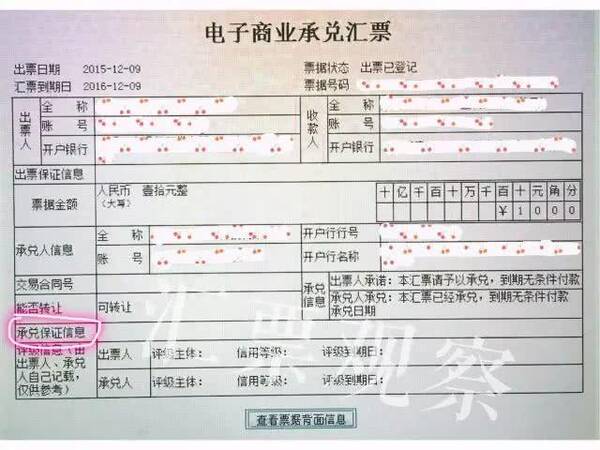 电子商业承兑汇票
出票日期 2015-12-09 票据状态 出票已登记
汇票到期日 2016-12-09 票据号码
出票人 全称 收款人 全称
账号 账号
开户银行 开户银行
出票保证信息
票据金额 人民币 壹拾元整 十亿千百十万千百十元角分
(大写) ¥1000
承兑人信息 全称 开户行行号
账号 开户行名称
交易合同号 承兑信息 出票人承诺：本汇票请予以承兑，到期无条件付款
能否转让 可转让 承兑人承兑：本汇票已经承兑，到期无条件付款
承兑日期
承兑保证信息
评级信息（由出票人、承兑人自己记载，仅供参考） 出票人 评级主体： 信用等级： 评级到期日：
承兑人 评级主体： 信用等级： 评级到期日：
查看票据背面信息
汇票观察